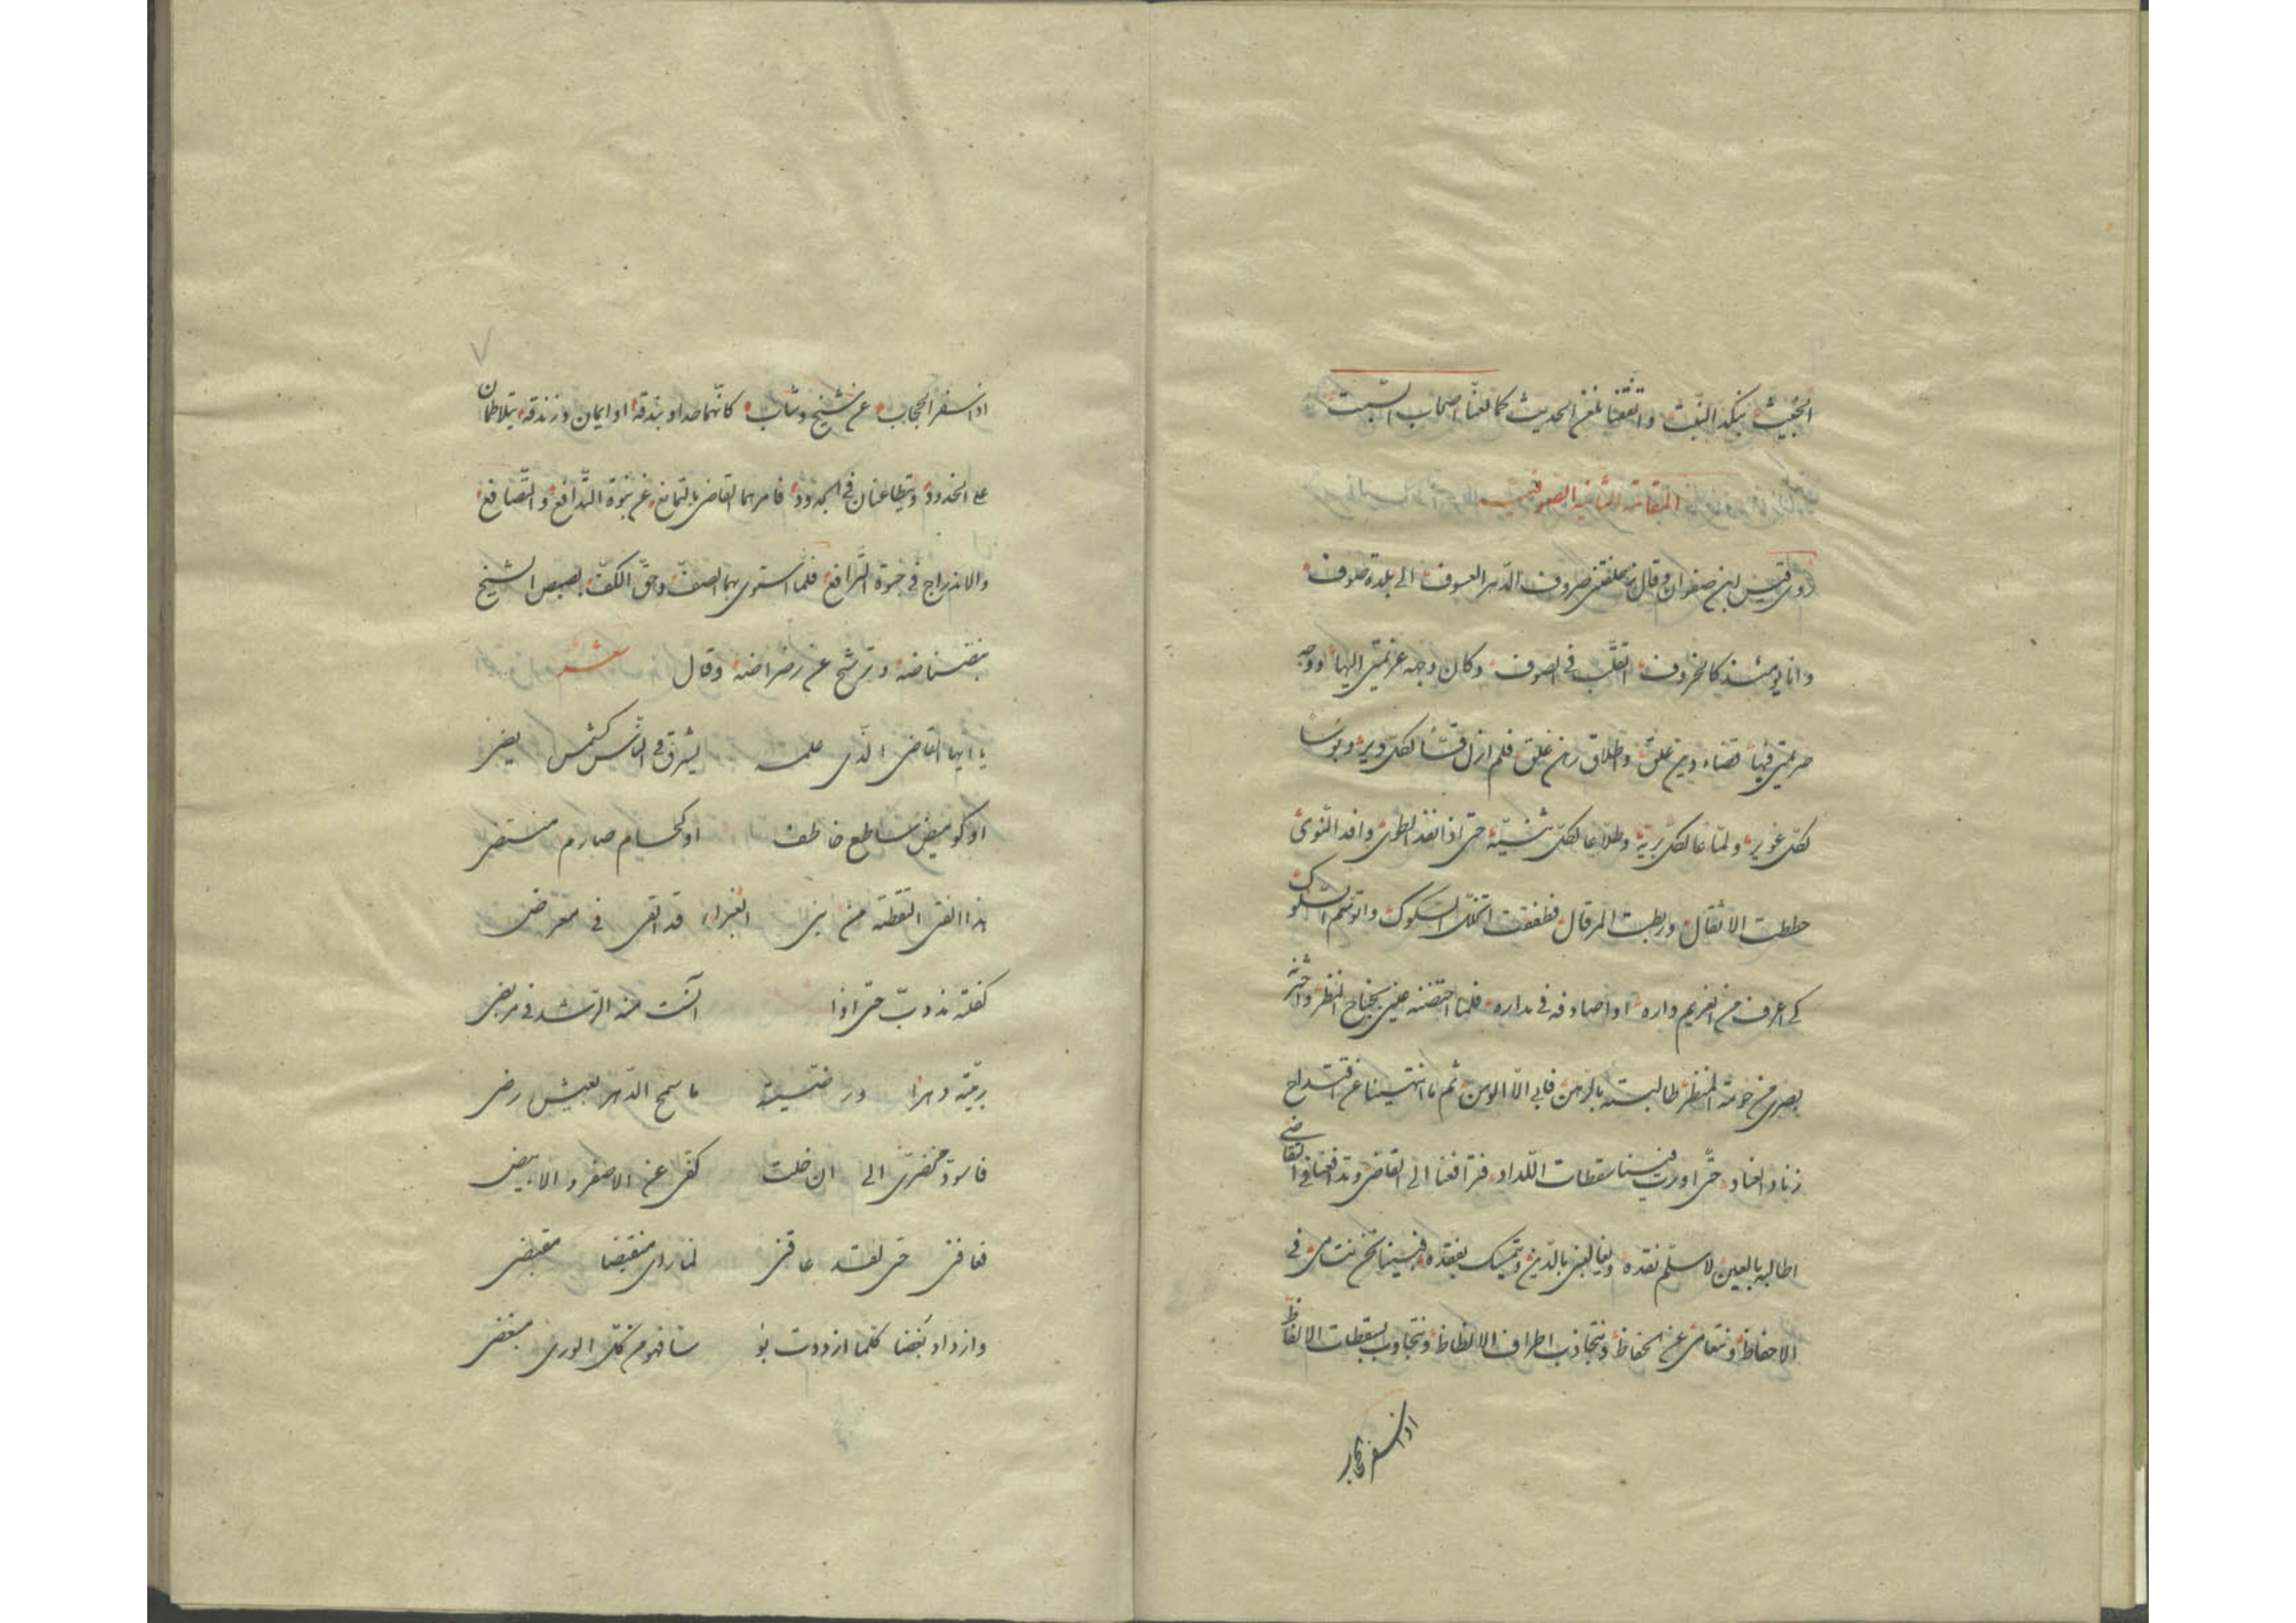 الخبيث بنكد النبث واتفقنا بلغن الحديث كما لعنا اصحاب السبت
المقامة الثانية الصوفية
روى قيس ابن صفوان وقال تلقفتني صروف الدهر العسوف الى بلدة صوف
وانا يومئذ كالخروف اتقلب فى الصوف وكان وجه عزيمتي اليها ووجه
صريمتي فيها قضاء دين علق واطلاق رهن غلق فلم ازل لكل دير وبؤسا
لكل غوير ولماعا لكل برية وطلاعا لكل ثنية حتى اذا نفذ الطوى وافد النوى
حططت الاثقال وربطت المرقال فطفقت اتخلل السكوك واتوسم السلوك
كى اعرف من الغريم داره او اصادفه فى مداره فلما احتضنه عيني بجناح النظر
بصرى من حومة المنظر طالبته بالرهن فابى الا الوهن ثم ما انتهينا عن اقتداح
زناد العناد حتى اورت فينا سقطات اللداد فترافعنا الى القاضى وتدافعنا فى التقاضى
اطالبه بالعين لاسلم نقده ويغالبنى بالدين ويتمسك بفقده فبينا نحن نتامى فى
الاحفاظ ونتعامى عن الحفاظ ونتجاذب اطراف الالظاظ ونتجاوب بسقطات الالفاظ
اذ اسفر الحجاب
اذ اسفر الحجاب عن شيخ وشاب كانهما حداو بندقة او ايمان وزندقة يتلاطمان
على الخدود ويتطاعنان فى الجدود فامرهما القاضى بالتمانع عن نبوة التدافع والتصافع
والاندراج فى حبوة الترافع فلما استوى بهما الصف وحق الكف بصبص الشيخ
بنضناضه وترشح عن رضراضه وقال شعر
يا ايها القاضى الذى علمه يشرق فى الناس كشمس يضى
او كوميض ساطع خاطف او كحسام صارم منتضى
هذا الفتى التقطته من بنى الغبراء قد القى فى معرض
كفلته مذ دب حتى اذا آنست منه الرشد فى مربضى
ربيته دهرا ورضيته ما سمح الدهر بعيش رضى
فاسود مخضرى الى ان خلت كفى عن الاصفر والابيض
فعافنى حتى لقد عاقنى لما راى منقبضا مقبضى
وازداد بغضا كلما ازددت بؤسا فهو من كل الورى مبغضى